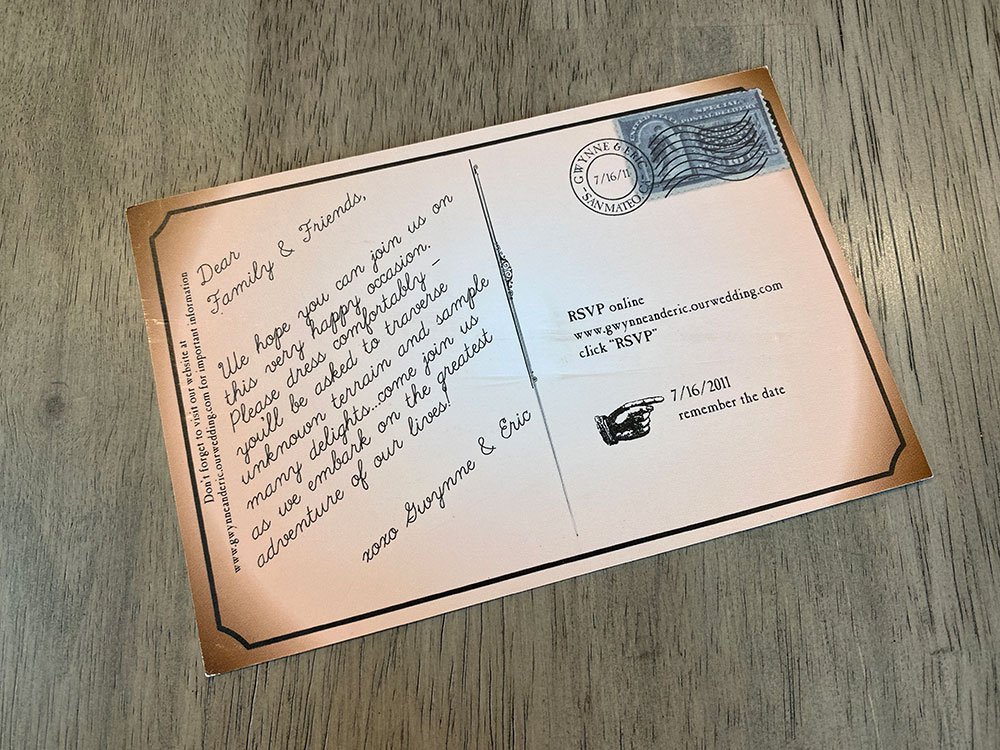 Don't forget to visit our website at
www.gwynneanderic.ourwedding.com for important information
Dear
Family & Friends,
We hope you can join us on
this very happy occasion.
Please dress comfortably –
you'll be asked to traverse
unknown terrain and sample
many delights...come join us
as we embark on the greatest
adventure of our lives!
xoxo Gwynne & Eric
GWYNNE & ERIC
7/16/11
SAN MATEO,
SPECIAL
POSTAL DELIVERY
UNITED STATES
RSVP online
www.gwynneanderic.ourwedding.com
click "RSVP"
7/16/2011
remember the date